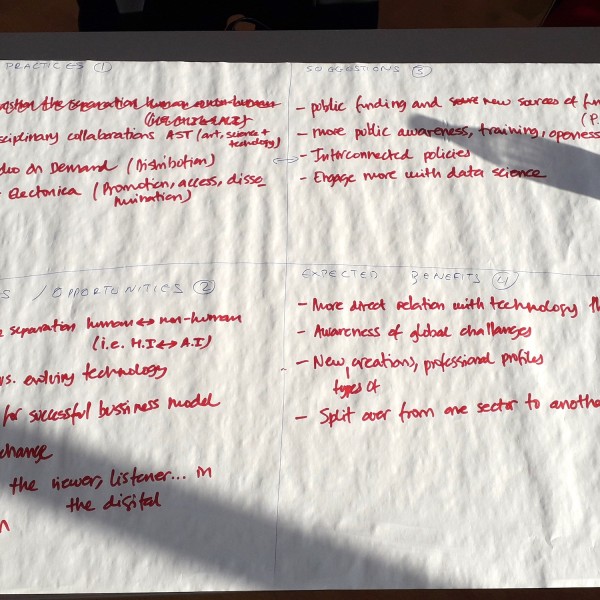 PRACTICES 1
disciplinary collaborations AST (art, science +
technology)
on Demand (Distribution)
Electonica (Promotion, access, disse
mination)
SUGGESTIONS 3
- public funding and new sources of fun
(P.
- more public awareness, training, openess
- Interconnected policies
- Engage more with data science
/ OPPORTUNITIES 2
separation human ↔ non-human
(i.e. H.I ↔ A.I)
vs. evolving technology
for successful bussiness model
change
the viewer, listener... M
the digital
EXPECTED BENEFITS 4
- More direct relation with technology th
- Awareness of global challanges
- New creations, professional profiles
types of
- Split over from one sector to anothe